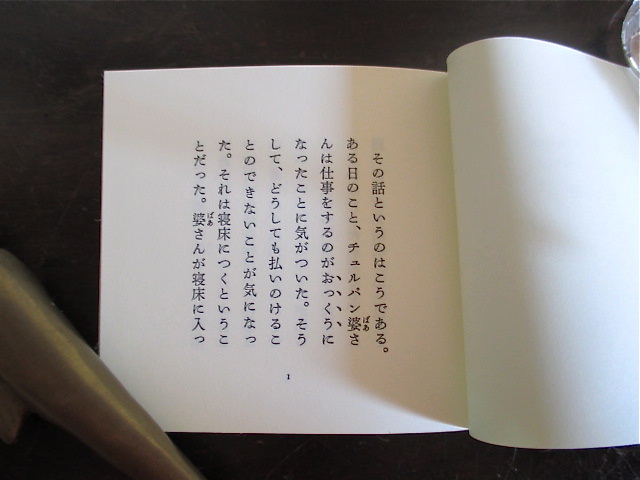 その話というのはこうである。
ある日のこと、チュルバン婆さ
んは仕事をするのがおっくうに
なったことに気がついた。そう
して、どうしても払いのけるこ
とのできないことが気になっ
た。それは寝床につくというこ
とだった。婆さんが寝床に入っ
ばあ
ばあ
1